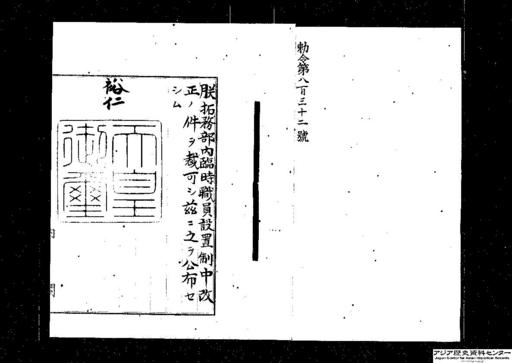 勅令第八百三十二號
朕拓務部內臨時職員設置制中改
正ノ件ヲ裁可シ玆ニ之ヲ公布セ
シム
裕仁
天皇
御璽
內 閣
アジア歴史資料センター
Japan Center for Asian Historical Records